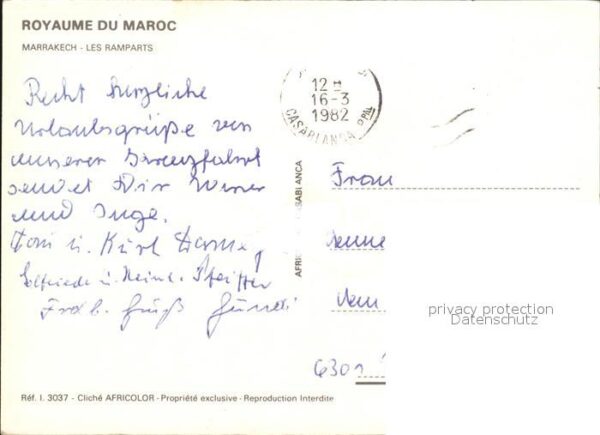 ROYAUME DU MAROC
MARRAKECH - LES RAMPARTS
Recht herzliche
Urlaubsgrüße von
unserer Kreuzfahrt
sendet Dir Werner
und Inge.
Toni u. Kurt
Elfriede u. Heinz Pfeiffer
Frdl. Gruß Gundi
12 H
16-3
1982
CASABLANCA PPAL
AFRIC CASABLANCA
Frau
6301
privacy protection
Datenschutz
Réf. I. 3037 - Cliché AFRICOLOR - Propriété exclusive - Reproduction Interdite